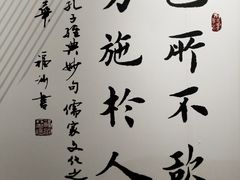 己所不欲
勿施於人
孔子經典妙句儒家文化之
華 福 書